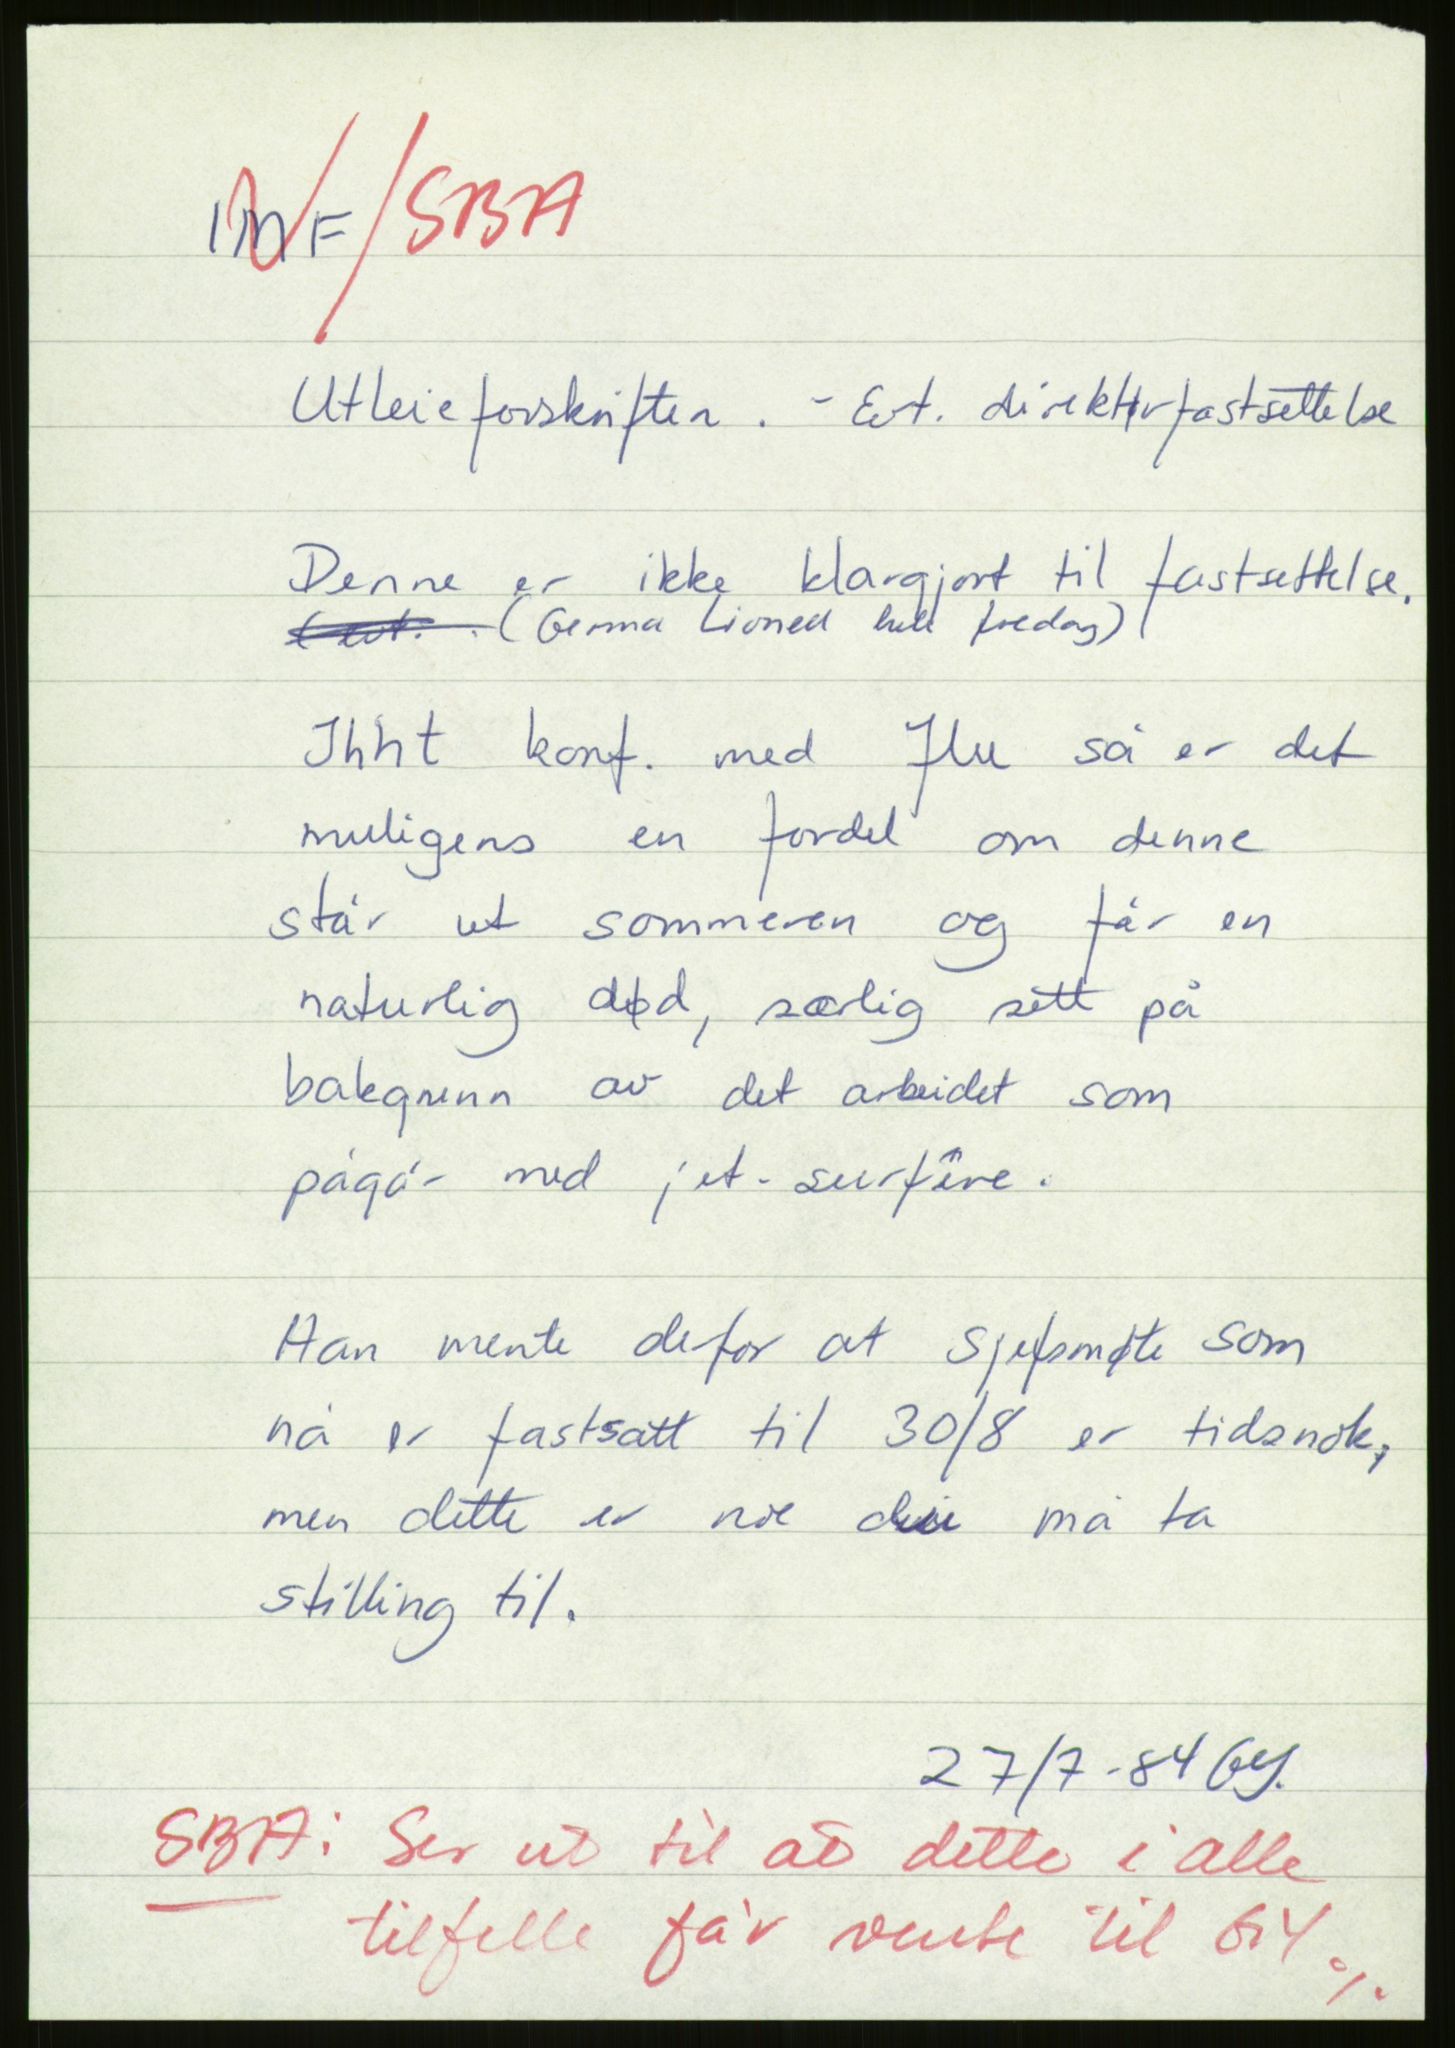 INF/SBA
Utleieforskriften. - Evt. direktørfastsettelse
Denne er ikke klargjort til fastsettelse.
(Gemma Lioned hele fredag)
Ihht konf. med så er det
muligens en fordel om denne
står ut sommeren og får en
naturlig død, særlig sett på
bakgrunn av det arbeidet som
pågår med jet-surfere.
Han mente defor at sjefsmøte som
nå er fastsatt til 30/8 er tidsnok,
men dette er noe må ta
stilling til.
27/7-84 GY.
SBA: Ser ut til at dette i alle
tilfelle får vente til GY